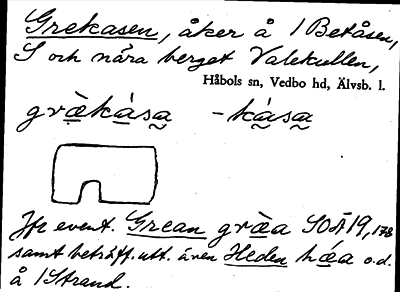 Grekasen, åker å 1 Betåsen,
S och nära berget Valekullen,
Håbols sn, Vedbo hd, Älvsb. l.
grὰ̱ká̱sa̰ -ká̱sa̰
Jfr event. Grean grὰ̱a SOÄ 19, 178
samt beträff. utt. även Heden há̱a o.d.
å 1 Strand.